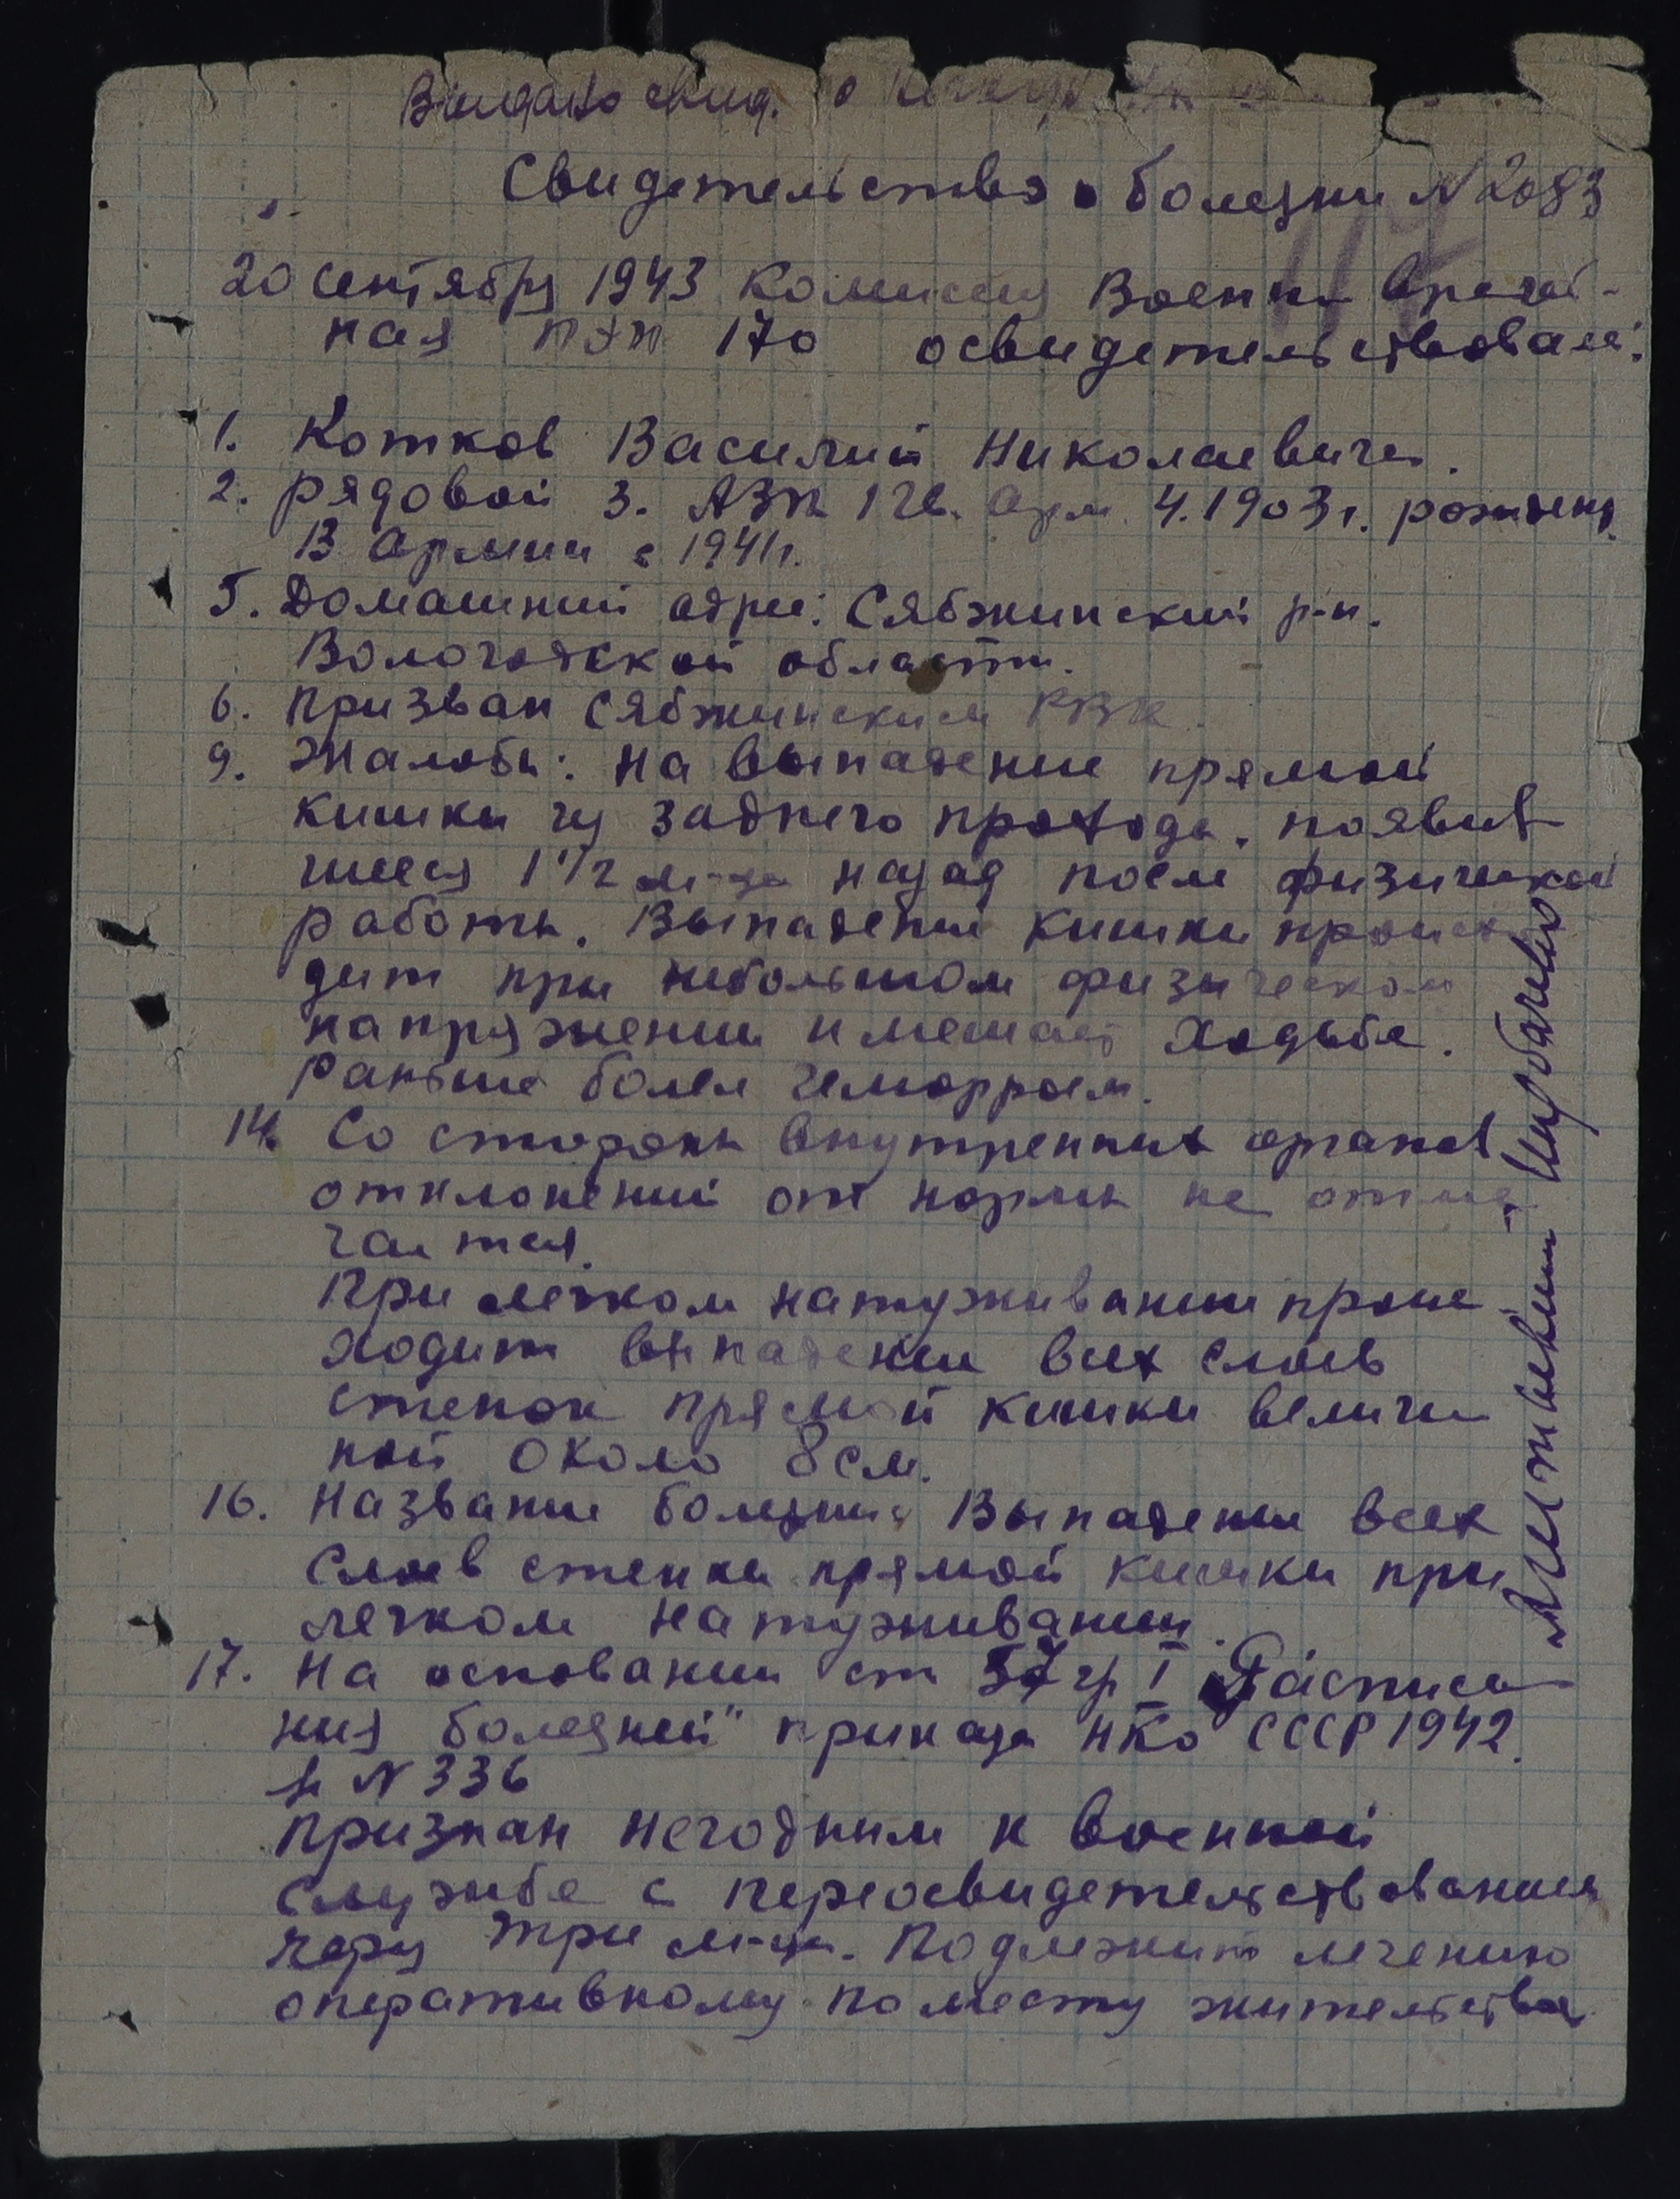 Выдано свид. о
Свидетельство о болезни N 2083
20 сентября 1943 Комиссия Военно Врачеб-
ная ПЭП 170 освидетельствовал:
1. Котков Василий Николаевич.
2. рядовой 3. АЗП 1 гв. Арм. 4. 1903 г. рожден.
В Армии с 1941 г.
5. Домашний адрес: Сябжинский р-н.
Вологодской области.
6. Призван Сябжинским РВК.
9. Жалобы: на выпадение прямой
кишки из заднего прохода, появив
шееся 1 1/2 м-ца назад после физической
работы. Выпадение кишки происхо
дит при небольшом физическом
напряжении и мешает ходьбе.
Раньше болел геморроем.
14. Со стороны внутренних органов
отклонений от нормы не отме
чается.
При легком натуживании проис
ходит выпадение всех слоев
стенок прямой кишки величи
ной около 8 см.
16. Название болезни: Выпадение всех
слоев стенки прямой кишки при
легком натуживании.
17. На основании ст 57 гр I "Расписа
ния болезней" приказа НКО СССР 1942
г. N 336
признан негодным к военной
службе с переосвидетельствованием
через три м-ца. Подлежит лечению
оперативному по месту жительства